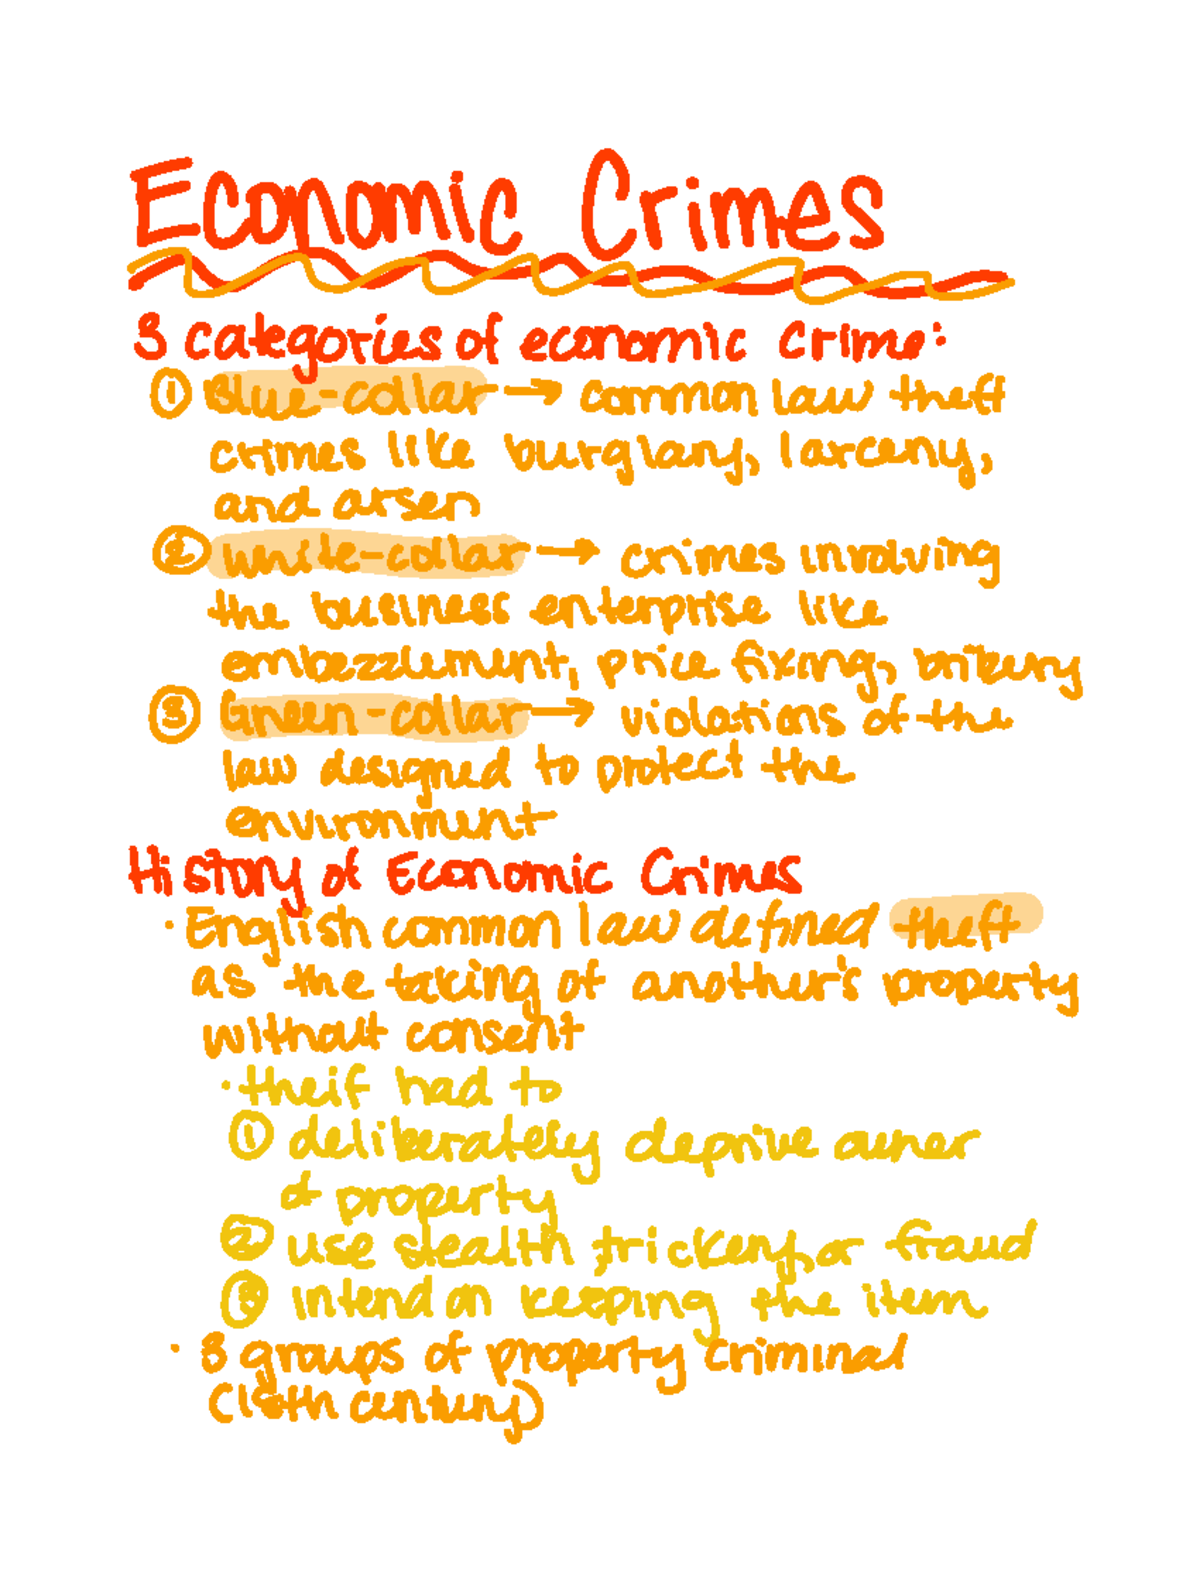 Economic Crimes
3 categories of economic crime:
① Blue-collar → common law theft
crimes like burglary, larceny,
and arsen
② White-collar → crimes involving
the business enterprise like
embezzlement, price fixing, bribery
③ Green-collar → violations of the
law designed to protect the
environment
History of Economic Crimes
· English common law defined theft
as the taking of another's property
without consent
· theif had to
① deliberately deprive owner
of property
② use stealth, trickery, or fraud
③ intend on keeping the item
· 3 groups of property criminal
(18th century)